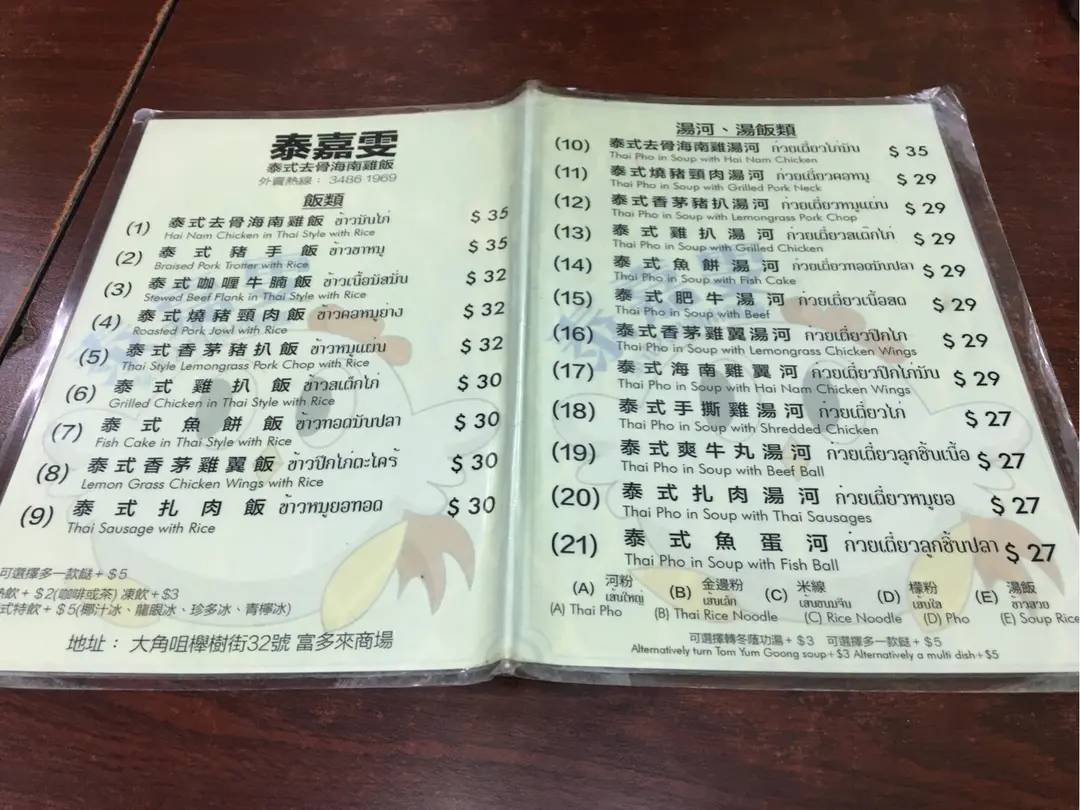 泰嘉雯
泰式去骨海南雞飯
外賣熱線： 3486 1969
飯類
(1) 泰式去骨海南雞飯 ข้าวมันไก่ $ 35
Hai Nam Chicken in Thai Style with Rice
(2) 泰式豬手飯 ข้าวขาหมู $ 35
Braised Pork Trotter with Rice
(3) 泰式咖喱牛腩飯 ข้าวเนื้อมัสมั่น $ 32
Stewed Beef Flank in Thai Style with Rice
(4) 泰式燒豬頸肉飯 ข้าวคอหมูย่าง $ 32
Roasted Pork Jowl with Rice
(5) 泰式香茅豬扒飯 ข้าวหมูแผ่น $ 32
Thai Style Lemongrass Pork Chop with Rice
(6) 泰式雞扒飯 ข้าวสเต็กไก่ $ 30
Grilled Chicken in Thai Style with Rice
(7) 泰式魚餅飯 ข้าวทอดมันปลา $ 30
Fish Cake in Thai Style with Rice
(8) 泰式香茅雞翼飯 ข้าวปีกไก่ตะไคร้ $ 30
Lemon Grass Chicken Wings with Rice
(9) 泰式扎肉飯 ข้าวหมูยอทอด $ 30
Thai Sausage with Rice
可選擇多一款餸 + $5
飲 + $2(咖啡或茶) 凍飲 + $3
式特飲 + $5(椰汁冰、龍眼冰、珍多冰、青檸冰)
地址： 大角咀櫸樹街32號 富多來商場
湯河、湯飯類
(10) 泰式去骨海南雞湯河 ก๋วยเตี๋ยวไก่มัน $ 35
Thai Pho in Soup with Hai Nam Chicken
(11) 泰式燒豬頸肉湯河 ก๋วยเตี๋ยวคอหมู $ 29
Thai Pho in Soup with Grilled Pork Neck
(12) 泰式香茅豬扒湯河 ก๋วยเตี๋ยวหมูแผ่น $ 29
Thai Pho in Soup with Lemongrass Pork Chop
(13) 泰式雞扒湯河 ก๋วยเตี๋ยวสเต็กไก่ $ 29
Thai Pho in Soup with Grilled Chicken
(14) 泰式魚餅湯河 ก๋วยเตี๋ยวทอดมันปลา $ 29
Thai Pho in Soup with Fish Cake
(15) 泰式肥牛湯河 ก๋วยเตี๋ยวเนื้อสด $ 29
Thai Pho in Soup with Beef
(16) 泰式香茅雞翼湯河 ก๋วยเตี๋ยวปีกไก่ $ 29
Thai Pho in Soup with Lemongrass Chicken Wings
(17) 泰式海南雞翼湯河 ก๋วยเตี๋ยวปีกไก่มัน $ 29
Thai Pho in Soup with Hai Nam Chicken Wings
(18) 泰式手撕雞湯河 ก๋วยเตี๋ยวไก่ $ 27
Thai Pho in Soup with Shredded Chicken
(19) 泰式爽牛丸湯河 ก๋วยเตี๋ยวลูกชิ้นเนื้อ $ 27
Thai Pho in Soup with Beef Ball
(20) 泰式扎肉湯河 ก๋วยเตี๋ยวหมูยอ $ 27
Thai Pho in Soup with Thai Sausages
(21) 泰式魚蛋河 ก๋วยเตี๋ยวลูกชิ้นปลา $ 27
Thai Pho in Soup with Fish Ball
(A) 河粉 (B) 金邊粉 (C) 米線 (D) 檬粉 (E) 湯飯
เส้นใหญ่ เส้นเล็ก เส้นขนมจีน เส้นใส ข้าวสวย
(A) Thai Pho (B) Thai Rice Noodle (C) Rice Noodle (D) Pho (E) Soup Rice
可選擇轉冬蔭功湯+ $3 可選擇多一款餸+ $5
Alternatively turn Tom Yum Goong soup+$3 Alternatively a multi dish+$5